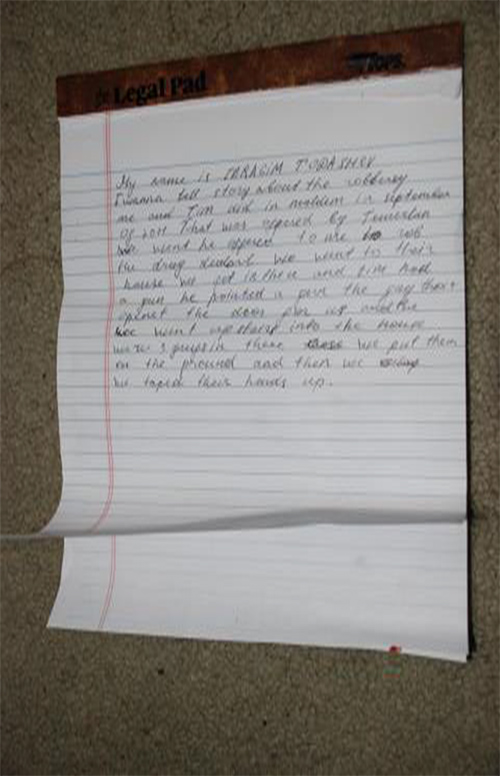 Legal Pad
TOPS
My name is IBRAGIM TODASHEV
I wanna tell story about the robbery
me and Tam did in Waltham in september
of 2011 That was by Tamerlan
went he to me to rob
the drug dealers We went to their
house we got in there and Tam had
a gun he pointed a gun the guy that
opened the door for us
we went upstairs into the House
3 guys in there we put them
on the ground and then we
we taped their hands up.